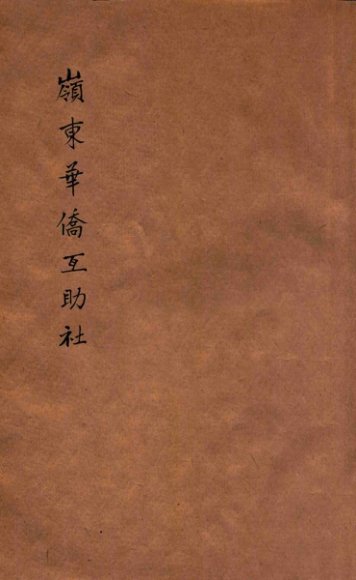 嶺東華僑互助社